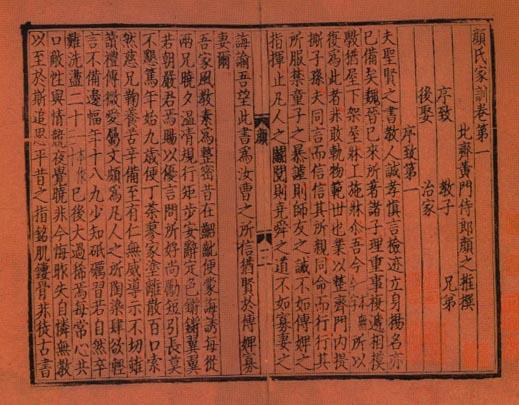 顏氏家訓卷第一
北齊黃門侍郎顏之推撰
序致 教子 兄弟
後娶 治家
序致第一
夫聖賢之書教人誠孝慎言檢迹立身揚名亦
已備矣魏晉已來所著諸子理重事複遞相模
斆猶屋下架屋牀上施牀尒吾今所以
復為此者非敢軌物範世也業以整齊門內提
撕子孫夫同言而信信其所親同命而行行其
所服禁童子之暴謔則師友之誡不如傅婢之
指揮止凡人之鬭鬩則堯舜之道不如寡妻之
誨諭吾望此書為汝曹之所信猶賢於傅婢寡
妻爾
吾家風教素為整密昔在齠齔便蒙誨誘每從
兩兄曉夕溫凊規行矩步安辭定色鏘鏘翼翼
若朝嚴君焉賜以優言問所好尚勵短引長莫
不懇篤年始九歲便丁荼蓼家塗離散百口索
然慈兄鞠養苦辛備至有仁無威導示不切雖
讀禮傳微愛屬文頗為凡人之所陶染肆欲輕
言不備邊幅年十八九少知砥礪習若自然卒
難洗盪二十已後大過稀焉每常心共
口敵性與情競夜覺曉非今悔昨失自憐無教
以至於斯追思平昔之指銘肌鏤骨非徒古書